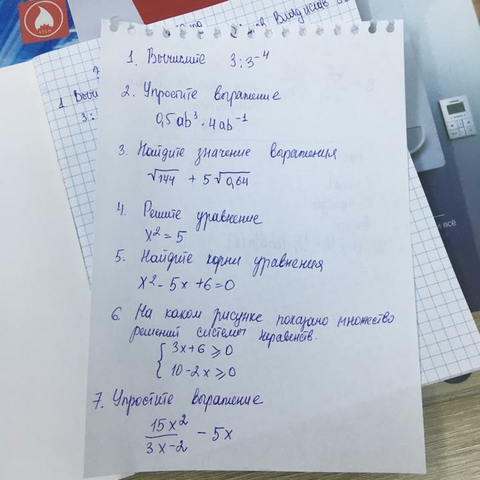 1. Вычислите 3:3⁻⁴
2. Упростите выражение
0,5ab³ · 4ab⁻¹
3. Найдите значение выражения
√144 + 5√0,64
4. Решите уравнение
x² = 5
5. Найдите корни уравнения
x² - 5x + 6 = 0
6. На каком рисунке показано множество
решений системы неравенств.
{ 3x + 6 ⩾ 0
10 - 2x ⩾ 0
7. Упростите выражение
15x²/3x-2 - 5x